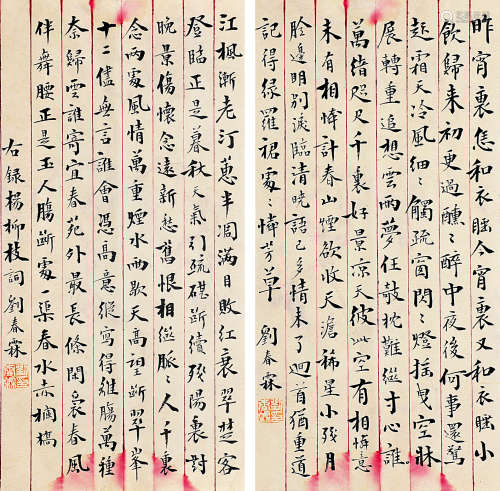 昨宵裏恁和衣睡今宵裏又和衣睡小
飲歸來初更過醺〻醉中夜後何事還驚
起霜天冷風細〻觸疏窗閃〻燈搖曳空牀
展轉重追想雲雨夢任攲枕難繼寸心誰
萬緒咫尺千裏好景涼天彼此空有相憐意
未有相憐計春山煙欲收天澹稀星小殘月
臉邊明別淚臨清曉語已多情未了迴首猶重道
記得綠羅裙處〻憐芳草 劉春霖
江楓漸老汀蕙半凋滿目敗紅衰翠楚客
登臨正是暮秋天氣引疏砧斷續殘陽裏對
晚景傷懷念遠新愁舊恨相繼脈〻人千裏
念兩處風情萬重煙水雨歇天高望斷翠峯
十二儘無言誰會憑高意縱寫得離腸萬種
奈歸雲誰寄宜春苑外最長條閒裊春風
伴舞腰正是玉人腸斷處一渠春水赤欄橋
右錄楊柳枝詞劉春霖